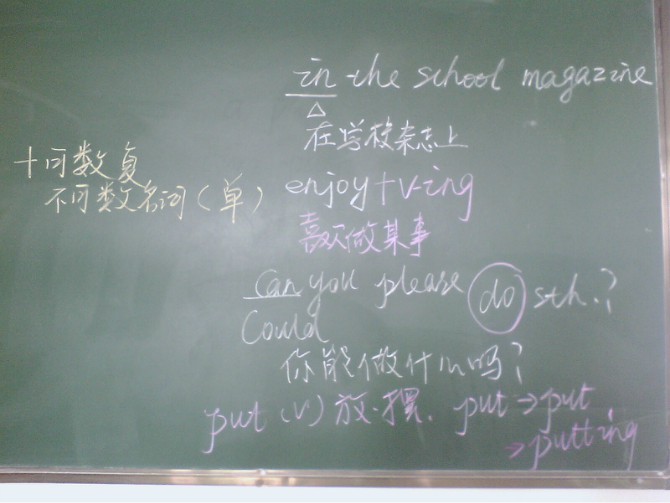 in the school magazine
在学校杂志上
十可数复
不可数名词(单)
enjoy+v-ing
喜欢做某事
Can you please do sth.?
Could
你能做什么吗?
put (v) 放.摆. put→put
→putting